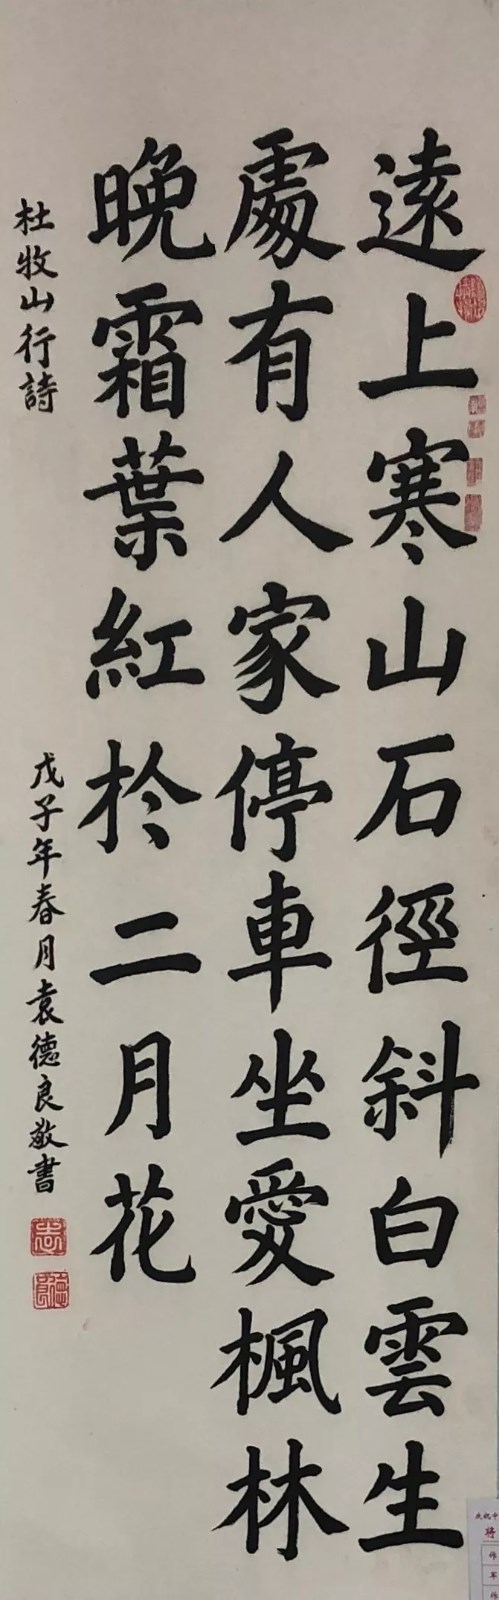 遠上寒山石徑斜白雲生
處有人家停車坐愛楓林
晚霜葉紅於二月花
杜牧山行詩
戊子年春月袁德良敬書